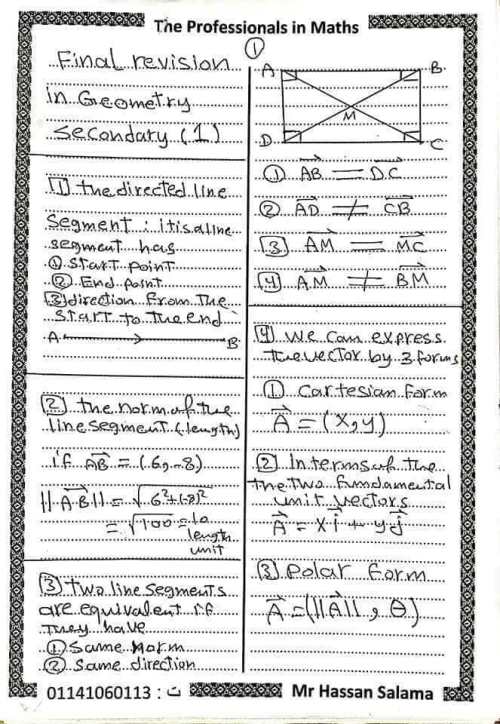 The Professionals in Maths
1
Final revision
in Geometry
Secondary (1)
1 the directed line
segment: it is a line
segment has
1 Start point
2 End point
3 direction from the
start to the end
A B
2 the norm of the
line segment (length)
if AB = (6, -8)
||AB|| = √6²+(-8)²
= √100 = 10
length
unit
3 two line segments
are equivalent if
they have
1 Same norm
2 Same direction
A B
M
D C
1 AB = DC
2 AD ≠ CB
3 AM = MC
4 AM ≠ BM
4 we can express
the vector by 3 forms
1 Cartesian form
A = (x, y)
2 In terms of the
the two fundamental
unit vectors
A = x i + y j
3 Polar form
A = (||A||, θ)
01141060113 : ت Mr Hassan Salama